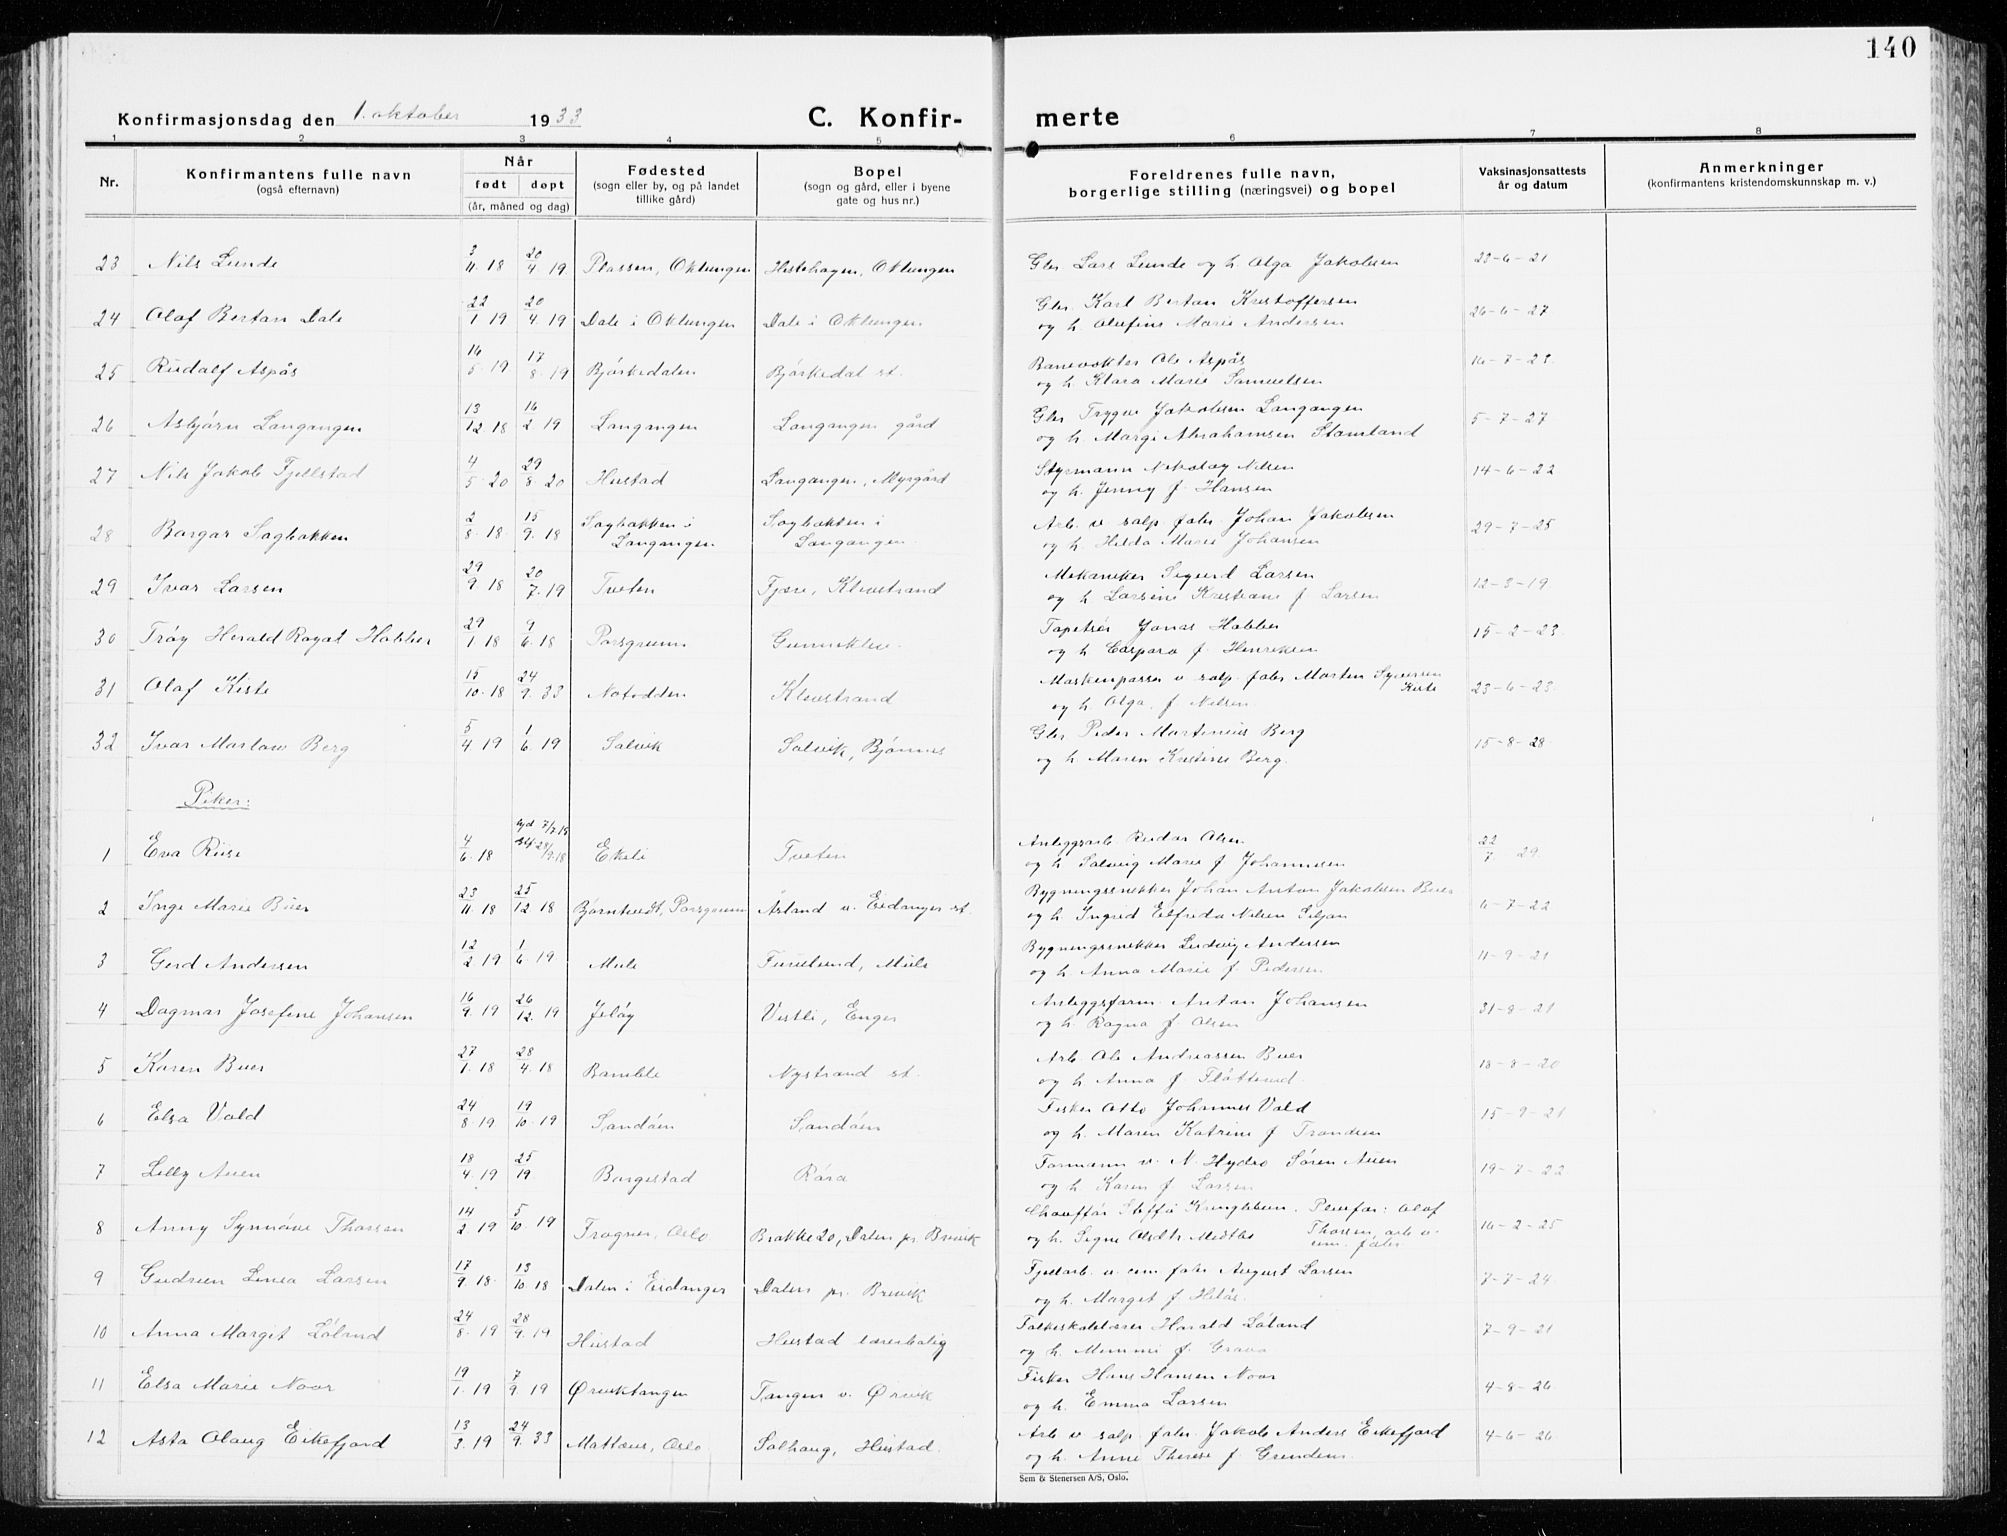 140
Konfirmasjonsdag den 1. oktober 1933 C. Konfirmerte
1 2 3 4 5 6 7 8
Nr. Konfirmantens fulle navn (også efternavn) Når født døpt (år, måned og dag) Fødested (sogn eller by, og på landet tillike gård) Bopel (sogn og gård, eller i byene gate og hus nr.) Foreldrenes fulle navn, borgerlige stilling (næringsvei) og bopel Vaksinasjonsattests år og datum Anmerkninger (konfirmantens kristendomskunnskap m. v.)
23 Nils Lunde 3/11 18 20/4 19 Plassen, Oklungen Hestehagen, Oklungen Gbr. Lars Lunde og h. Olga Jakobsen 23-6-21
24 Olaf Bertan Dale 22/1 19 20/4 19 Dale i Oklungen Dale i Oklungen Gbr. Karl Bertan Kristoffersen
og h. Olefine Marie Andersen 26-6-27
25 Rudolf Aspås 16/5 19 17/8 19 Bjørkedalen Bjørkedal st. Banevokter Ole Aspås
og h. Klara Marie Samuelsen 16-7-23
26 Asbjørn Langangen 13/12 18 16/2 19 Langangen Langangen gård Gbr. Trygve Jakobsen Langangen
og h. Margi Abrahamsen Stamland 5-7-27
27 Nils Jakob Fjellstad 4/5 20 29/8 20 Hustad Langangen, Myrgård Styrmann Nikolay Nilsen
og h. Jenny f. Hansen 14-6-22
28 Borgar Sagbakken 2/8 18 15/9 18 Sagbakken i Langangen Sagbakken i Langangen Arb. v. salp. fabr. Johan Jakobsen
og h. Hilda Marie Johansen 29-7-25
29 Ivar Larsen 29/9 18 20/7 19 Tveten Fjære, Klevstrand Mekaniker Sigurd Larsen
og h. Larsine Kristiane f. Larsen 12-3-19
30 Trøy Herald Royat Hobber 29/1 18 9/6 18 Porsgrunn Gunneklev Tapetser Jonas Hobber
og h. Caspara f. Henriksen 15-2-23
31 Olaf Kiste 15/10 18 24/9 33 Notodden Klevstrand Maskinpasser v. salp. fabr. Morten Syversen Kiste
og h. Olga f. Nilsen 23-6-23
32 Ivar Marlow Berg 5/4 19 1/6 19 Salvik Salvik, Bjønnes Gbr. Peder Martinius Berg
og h. Maren Kristine Berg. 15-8-28
Piker:
1 Eva Riise 4/6 18 hjd 7/7 18 stf. 28/9 18 Ekeli Tveten Anleggsarb. Reidar Olsen
og h. Solveig Marie f. Johannesen 22/7 29
2 Inge Marie Buer 23/11 18 25/12 18 Bjørntvedt, Porsgrunn Åsland v. Eidanger st. Bygningssnekker Johan Anton Jakobsen Buer
og h. Ingrid Elfrida Nilsen Siljan 6-7-22
3 Gerd Andersen 12/2 19 1/6 19 Mule Furulund, Mule Bygningssnekker Ludvig Andersen
og h. Anna Marie f. Pedersen 11-9-21
4 Dagmar Josefine Johansen 16/9 19 26/12 19 Jeløy Vestli, Enger Anleggsform. Anton Johansen
og h. Ragna f. Olsen 31-8-21
5 Karen Buer 27/1 18 28/4 18 Bamble Nystrand st. Arb. Ole Andreassen Buer
og h. Anna f. Fløtterød 18-8-20
6 Elsa Vold 24/8 19 19/10 19 Sandøen Sandøen Fisker Otto Johannes Vold
og h. Maren Katrine f. Trondsen 15-9-21
7 Lilly Auen 18/4 19 25/19 Borgestad Röra Formann v. N. Hydro Søren Auen
og h. Karen f. Larsen 19-7-22
8 Anny Synnøve Thorsen 14/2 19 5/10 19 Frogner, Oslo Brakke 20, Dalen pr. Brevik Chauffør Steffen Kringlebun. Pleiefar: Olaf
og h. Signe Thorsen, arb. v. cem. fabr. 16-2-25
9 Gudrun Linea Larsen 17/9 18 13/10 18 Dalen i Eidanger Dalen pr. Brevik Fjellarb. v. cem. fabr. August Larsen
og h. Margit f. Helås. 7-7-24
10 Anna Margit Løland 24/8 19 28/9 19 Hustad Hustad lærerbolig Folkeskolelærer Harald Løland
og h. Mimmi f. Grava 7-9-21
11 Elsa Marie Noor 19/1 19 7/9 19 Ørviktangen Tangen v. Ørvik Fisker Hans Hansen Noor
og h. Emma Larsen 4-8-26
12 Asta Olaug Eikefjord 13/3 19 24/9 33 Matteus, Oslo Solhaug, Hustad. Arb. v. salp. fabr. Jakob Anders Eikefjord
og h. Anne Therese f. Grundens 4-6-26
Sem & Stenersen A/S, Oslo.